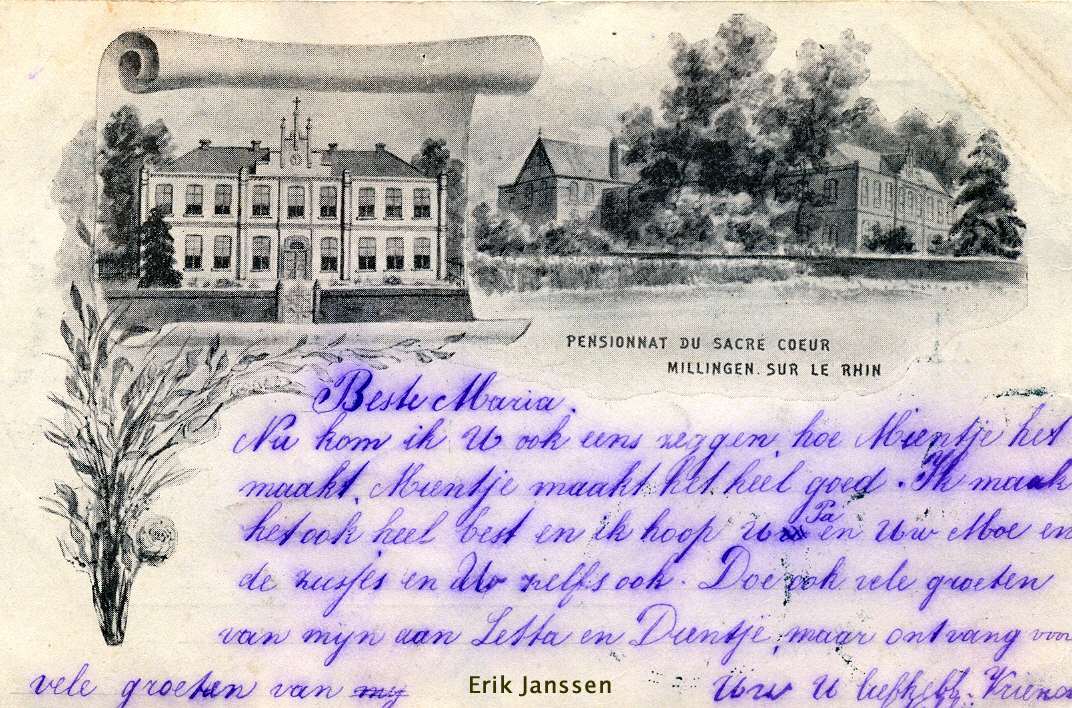 PENSIONNAT DU SACRÉ COEUR
MILLINGEN. SUR LE RHIN
Beste Maria.
Nu kom ik U ook eens zeggen, hoe Mientje het
maakt. Mientje maakt het heel goed. Ik maak
het ook heel best en ik hoop Uw Pa en Uw Moe en
de zusjes en Uw zelfs ook. Doe ook vele groeten
van mijn aan Letta en Dientje, maar ontvang voor
vele groeten van my Uw U liefhebb. Vriend
Erik Janssen